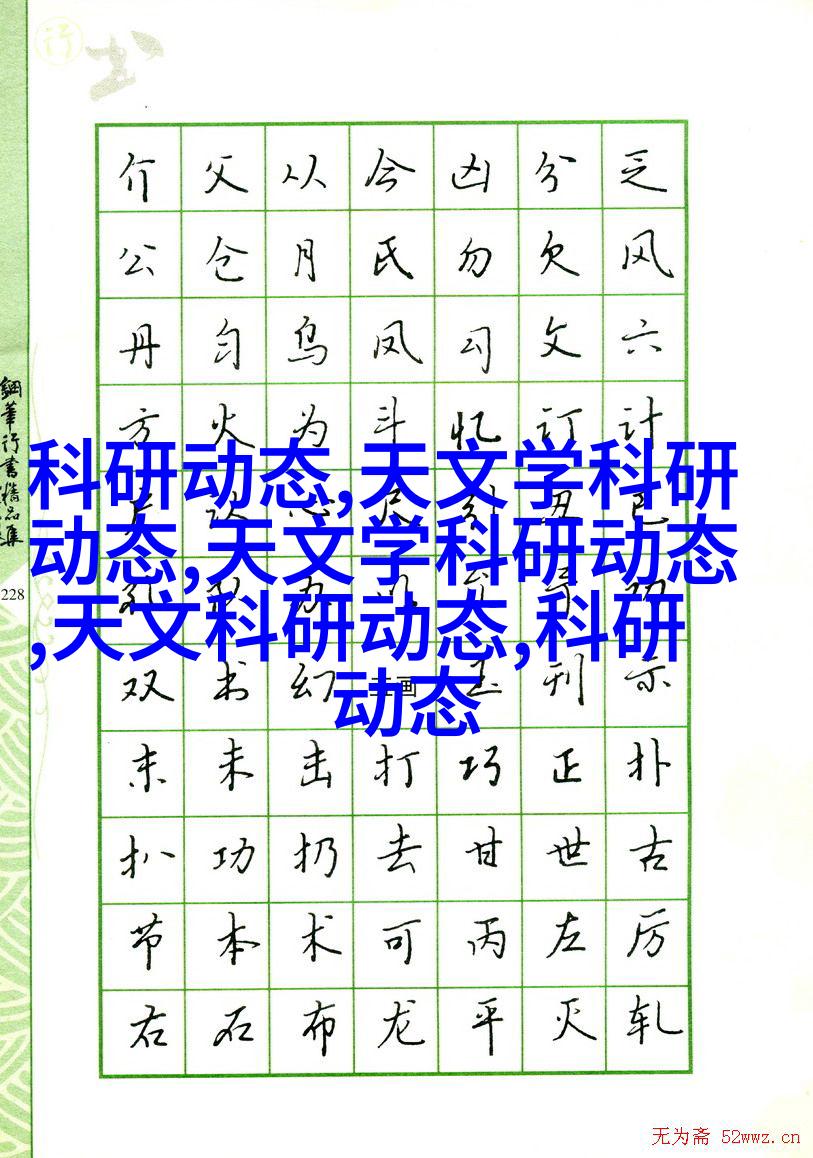 行书
介父从令凶分乏
公仓月氏勿欠风
丹匀乌凤勾文六
方火为斗忆订计
科研动态,天文学科研
动态,天文学科研动态
,天文科研动态,科研
动态
双书幻
四画
玉刊示
末未击打巧正扑
扒功扔去甘世古
节本术可丙左厉
右石布龙平灭轧
钢笔行书精品集
228
无为斋 52wwz.cn